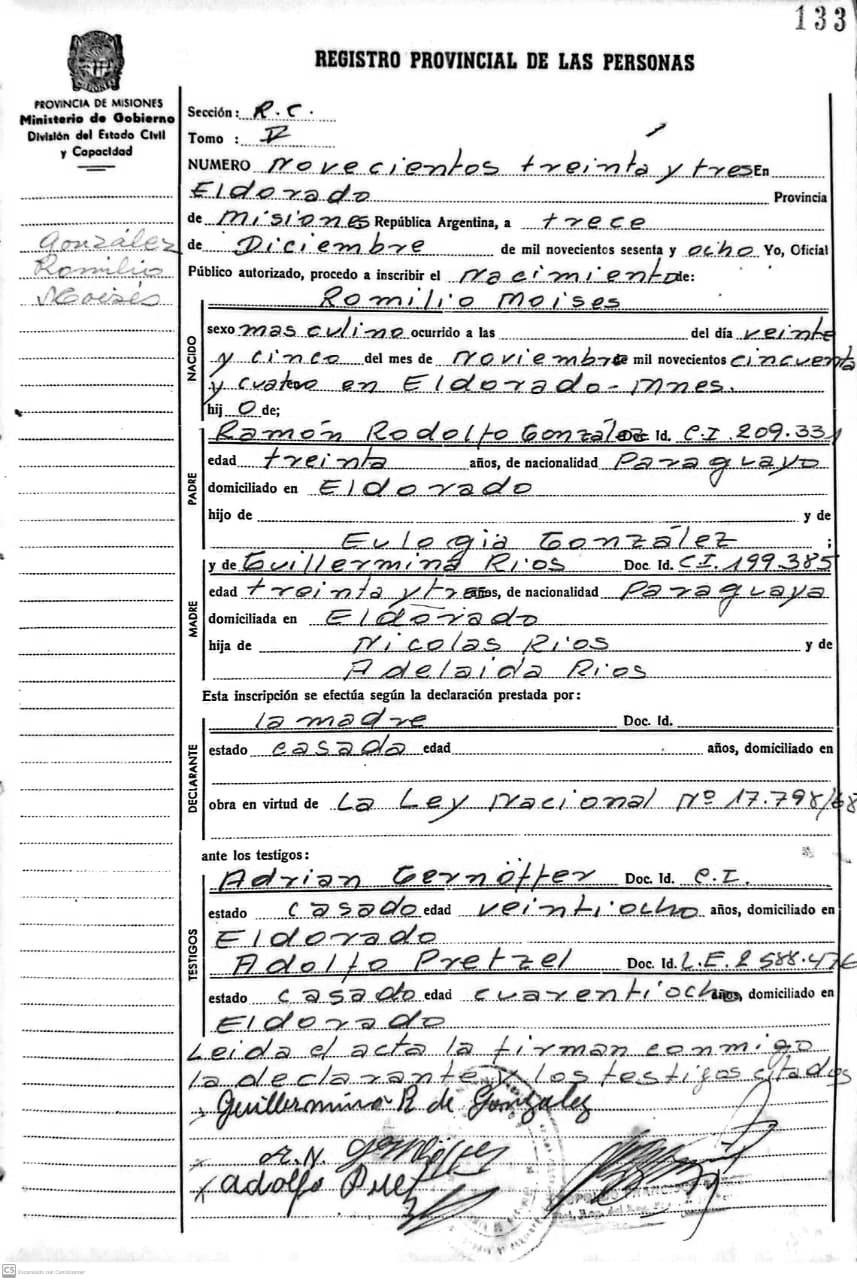 133
REGISTRO PROVINCIAL DE LAS PERSONAS
PROVINCIA DE MISIONES
Ministerio de Gobierno
División del Estado Civil
y Capacidad
González
Romilio
Moisés
Sección: R.C.
Tomo : V
NUMERO Novecientos treinta y tres En
Eldorado Provincia
de Misiones República Argentina, a trece
de Diciembre de mil novecientos sesenta y ocho Yo, Oficial
Público autorizado, procedo a inscribir el Nacimiento de:
NACIDO
Romilio Moises
sexo masculino ocurrido a las del día veinte
y cinco del mes de Noviembre de mil novecientos cincuenta
y cuatro en Eldorado-Mnes.
hij o de;
PADRE
Ramón Rodolfo González Doc. Id. C.I. 209.331
edad treinta años, de nacionalidad Paraguayo
domiciliado en Eldorado
hijo de y de
Eulogia González ;
MADRE
y de Guillermina Rios Doc. Id. C.I. 199.385
edad treinta y tres años, de nacionalidad Paraguaya
domiciliada en Eldorado
hija de Nicolas Rios y de
Adelaida Rios
Esta inscripción se efectúa según la declaración prestada por:
DECLARANTE
la madre Doc. Id.
estado casada edad años, domiciliado en
obra en virtud de La Ley Nacional Nº 17.798/68
ante los testigos:
TESTIGOS
Adrian Doc. Id. C.I.
estado casado edad veintiocho años, domiciliado en
Eldorado
Adolfo Pretzel Doc. Id. L.E. 2588.476
estado casado edad cuarentiocho años, domiciliado en
Eldorado
Leida el acta la firman conmigo
la declarante y los testigos citados
Guillermina R de Gonzalez
A.N.
Adolfo
CS Escaneado con CamScanner